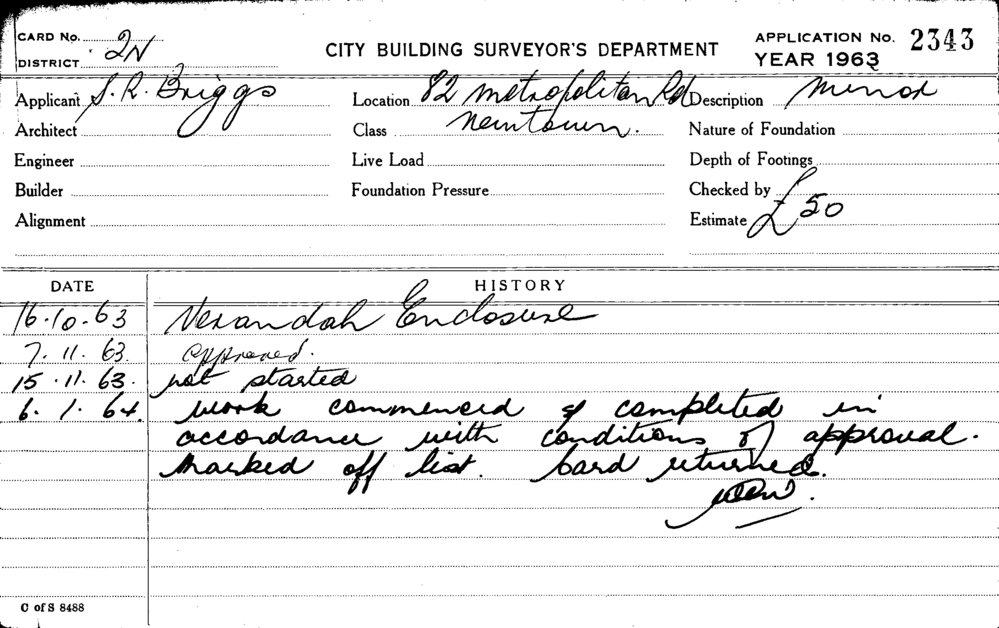 CARD No.
DISTRICT 2N
CITY BUILDING SURVEYOR'S DEPARTMENT
APPLICATION No. 2343
YEAR 1963
Applicant S. R. Briggs
Location 82 metropolitan Rd
Description Minor
Architect
Class Newtown.
Nature of Foundation
Engineer
Live Load
Depth of Footings
Builder
Foundation Pressure
Checked by
Alignment
Estimate £50
DATE HISTORY
16.10.63 Verandah Enclosure
7.11.63. approved.
15.11.63. not started
6.1.64. work commenced & completed in
accordance with conditions of approval.
Marked off list. Card returned.
C of S 8488